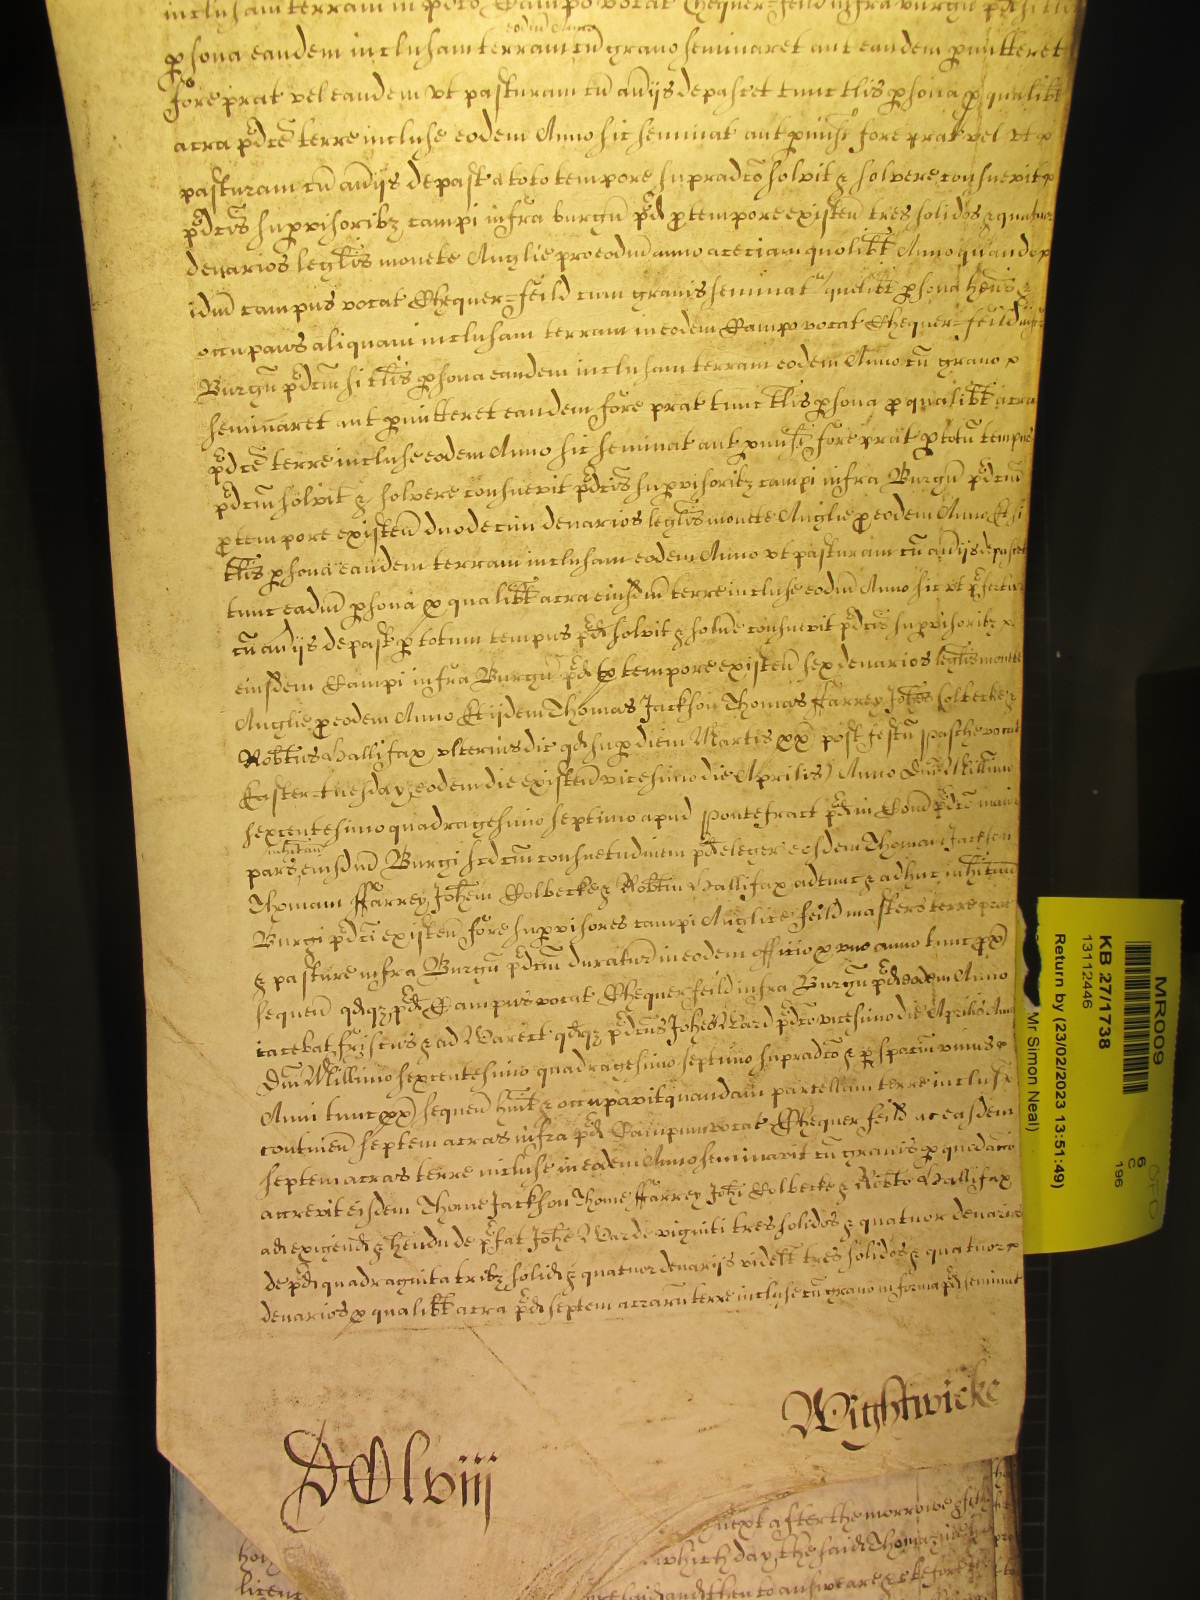 inclusam terram in pdco Campo vocat Chequer-feild infra burgu pd si tlis
eodm Anno
psona eandem inclusam terram cu grano seminaret aut eandem pmitteret
fore prat vel eandem vt pasturam cu aviijs depascet tunc tlis psona p qualibt
acra pdce terre incluse eodem Anno sic seminat aut pmiss fore prat vel vt p
pasturam cu aviijs depast a toto tempore supradco solvit & solvere consuevit
pdcis supvisoribz campi infra burgu pd p tempore existen tres solidos & quatuor
denarios leglis monete Anglie pro eodm anno ac eciam quolibt Anno quando
idm campus vocat Chequer-feild cum granis seminat quelibt psona hens &
occupans aliquam inclusam terram in eodem Campo vocat Chequer-feild infra
Burgu pdcm si tlis psona eandem inclusam terram eodem Anno cu grano
seminaret aut pmitteret eandem fore prat tunc tlis psona p qualibt acra
pdce terre incluse eodem Anno sic seminat aut pmiss fore prat p totu tempus
pdcm solvit & solvere consuevit pdcis supvisoribz campi infra Burgu pdcm
p tempore existen duodecim denarios leglis monete Anglie p eodem Anno Et si
tlis psona eandem terram inclusam eodem Anno vt pasturam cu aviijs depascet
tunc eadm psona p qualibt acra eiusdm terre incluse eodm Anno sic vt pfertur
cu aviijs depast p totum tempus pd solvit & solvere consuevit pdcis supvisoribz
eiusdem Campi infra Burgu pd p tempore existen sex denarios leglis monete
Anglie p eodem Anno Et ijdem Thomas Jackson Thomas ffarrey Johes Colbecke &
Robtus Hallifax vlterius dic qd sup diem Martis px post festu Pasche vocat
Easter-tuesday eodem die existen vicesimo die Aprilis Anno Dni Millimo
sexcentesimo quadragesimo septimo apud Pontefract pd in Com pdco maior
inhitan
pars eiusdm Burgi scdm consuetudinem pd eleger eosdem Thomam Jackson
Thomam ffarrey Johem Colbecke & Robtm Hallifax adtunc & adhuc inhitan
Burgi pdci existen fore supvisores campi Anglice feild masters terre prat
& pasture infra Burgu pdcm duratur in eodem officio p vno anno tunc px
sequen qdqz pd Campus vocat Chequer feild infra Burgu pd eodem Anno
iacebat friscus & ad Warect qdqz pdcus Johes Ward pdco vicesimo die Aprilis Anno
Dni Millimo sexcentesimo quadragesimo septimo supradco & p spaciu vnius
Anni tunc px sequen huit & occupavit quandam parcellam terre inclus
continen septem acras infra pd Campum vocat Chequer feild ac easdem
septem acras terre incluse in eodem Anno seminavit cu granis p quod acco
accrevit eisdem Thome Jackson Thome ffarrey Johi Colbecke & Robto Hallifax
ad exigend & hend de pfat Johe Ward viginti tres solidos & quatuor denarios
de pd quadraginta tribz solid & quatuor denarijs videlt tres solidos & quatuor
denarios p qualibt acra pd septem acraru terre incluse cu grano in forma pd seminat
Wightwicke
DClviij
next after the morrowe
which day the said Thomas
and then to answeare
licenc
MR009
KB 27/1738
13112446
6
C
196
Return by (23/02/2023 13:51:49)
Mr Simon Neal)